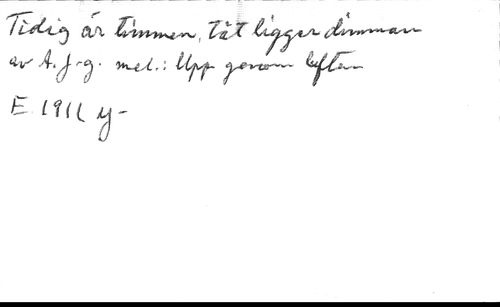 Tidig är timmen, tät ligger dimman
av A. J-g. mel.: Upp genom luften
E. 1911 y-